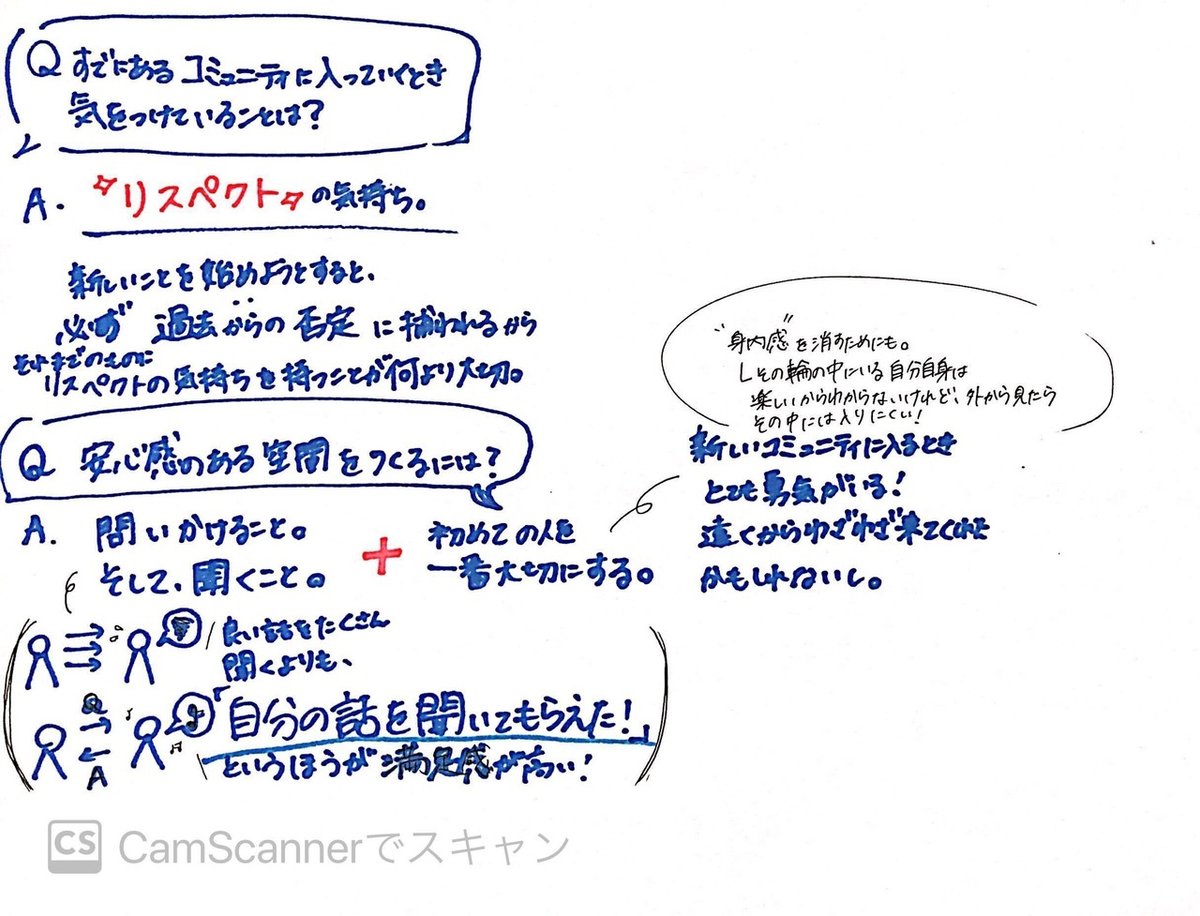 Q すでにあるコミュニティに入っていくとき
気をつけていることは?
A. リスペクトの気持ち。
新しいことを始めようとすると、
必ず 過去からの否定に捕われるから
それまでのものに
リスペクトの気持ちを持つことが何より大切。
Q 安心感のある空間をつくるには?
A. 問いかけること。
そして、聞くこと。
+
初めての人を
一番大切にする。
"身内感"を消すためにも。
その輪の中にいる自分自身は
楽しいからわからないけれど、外から見たら
その中には入りにくい!
新しいコミュニティに入るとき
とても勇気がいる!
遠くからわざわざ来てくれた
かもしれないし。
良い話をたくさん
聞くよりも、
Q
A
「自分の話を聞いてもらえた!」
というほうが満足感が高い!
CS CamScannerでスキャン